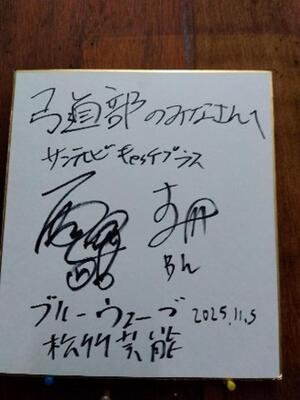 弓道部のみなさんへ
サンテレビ キャッチプラス
ブルーウェーブ 2025.11.5
松竹芸能